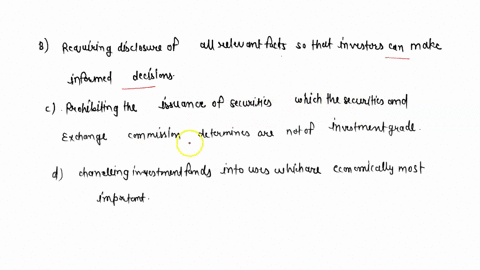 B) Requiring disclosure of all relevant facts so that investors can make
informed decisions.
c). Prohibiting the issuance of securities which the securities and
Exchange commission determines are not of investment grade.
d) channeling investment funds into uses which are economically most
important.